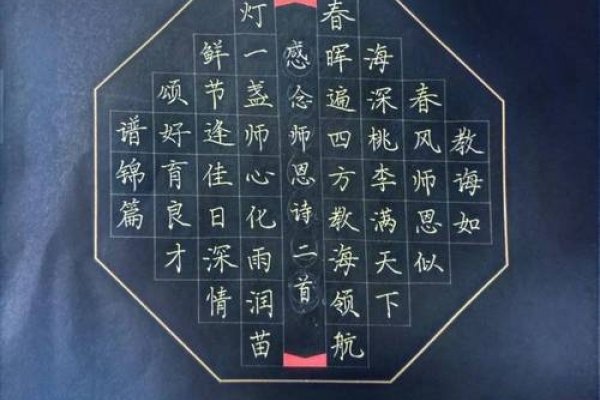 教诲如
春风师恩似
海深桃李满天下
春晖遍四方教海领航
感念师恩诗二首
灯一盏师心化雨润苗
鲜节逢佳日深情
颂好育良才
谱锦篇